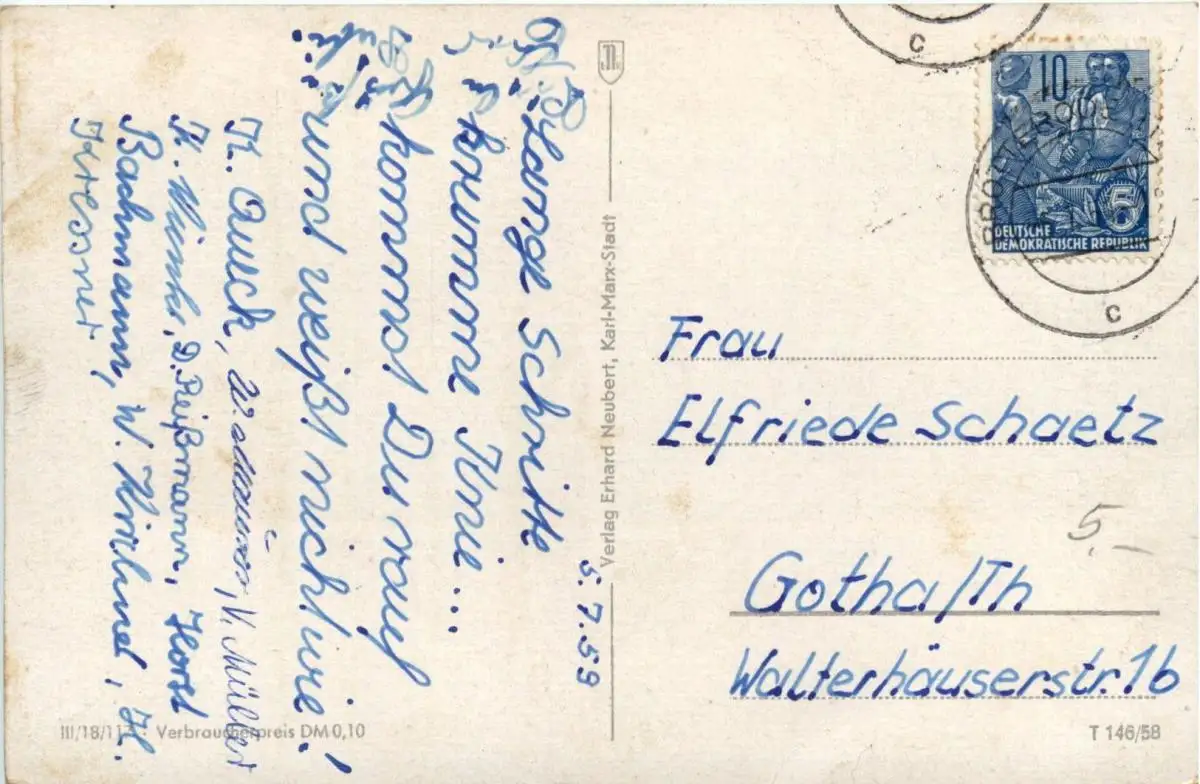 5.7.59
Lange Schritte
krumme Knie...
kommst Du rauf
und weißt nicht wie!
K. Queck, V. Müller
D. Reißmann, Horst
Bachmann, W. Kretschmer, H.
Verlag Erhard Neubert, Karl-Marx-Stadt
III/18/11 Verbraucherpreis DM 0,10
10
5
DEUTSCHE
DEMOKRATISCHE REPUBLIK
C
C
Frau
Elfriede Schaetz
5.–
Gotha/Th
Walterhäuserstr. 1b
T 146/58